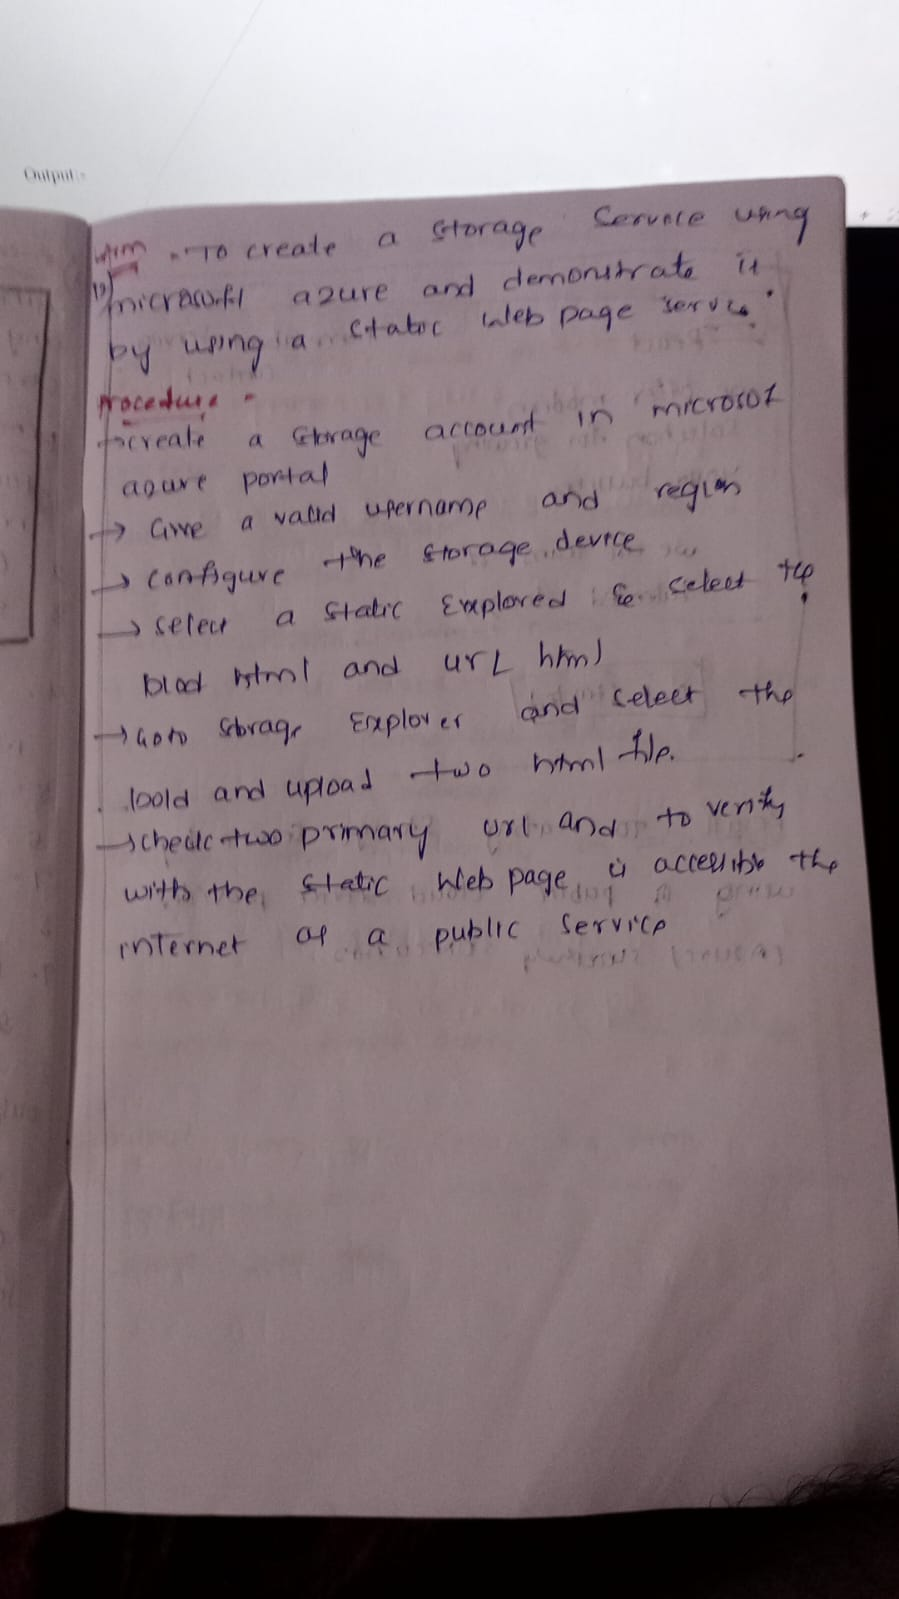 Output:-
Aim :- To create a Storage Service using
microsoft azure and demonstrate it
by using a static Web page service.
procedure -
→ create a storage account in microsoft
azure portal
→ Give a valid username and region
→ configure the storage device
→ select a static Explored & select the
html and URL html
→ Goto Storage Explorer and select the
and upload two html file.
→ check two primary url and to verify
with the static Web page is accessible the
internet as a public service